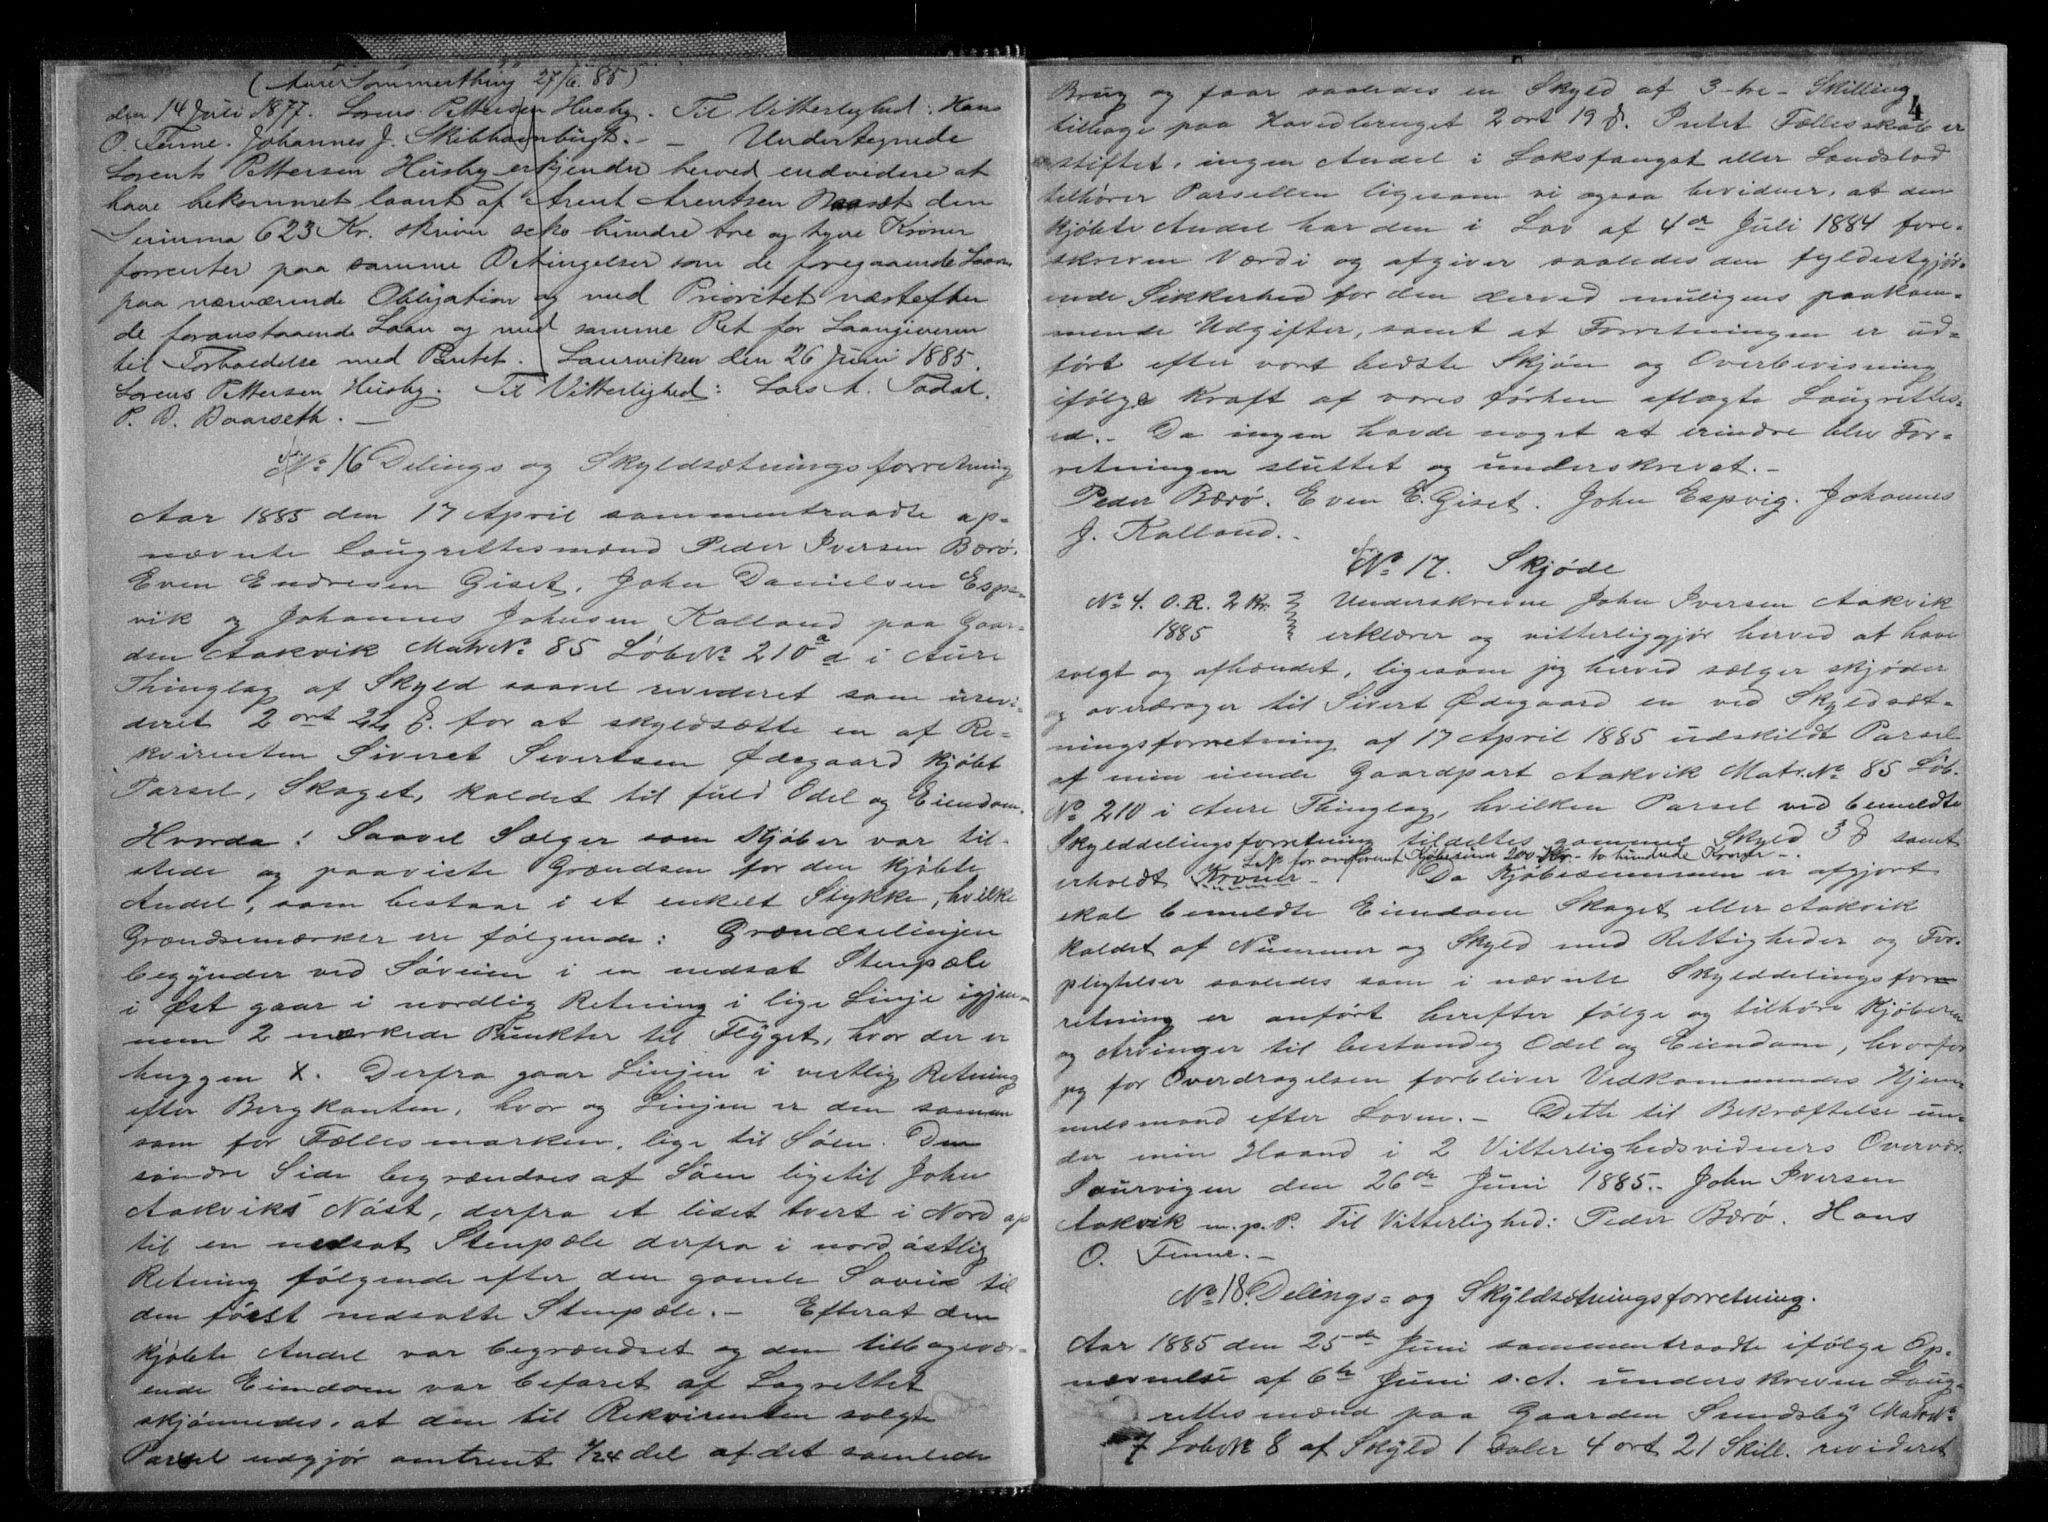 (Aure Sommerthing 27/6. 85)
den 14 Juli 1877. Lorens Pettersen Husby. Til Vitterlighed: Hans
O. Finne. Johannes J. Skibhambugt. — Undertegnede
Lorents Pettersen Husby erkjender herved endvidere at
have bekommet laant af Arent Arentsen Naasæt den
Summa 623 Kr. skriver seks hundre tre og tyve Kroner
forrenter paa samme Betingelser som de foregaaende Laan
paa nærværende Obligation og med Prioritet næstefter
de foranstaaende Laan og med samme Ret for Laangiveren
til Forholdelse med Pantet. Laurviken den 26 Juni 1885.
Lorens Pettersen Husby. Til Vitterlighed: Lars A. Todal.
P. O. Baarseth. —
No 16 Delings og Skyldsætningsforretning
Aar 1885 den 17 April sammentraadte op-
nævnte Laugrettesmænd Peder Iversen Bærø.
Even Endresen Giset, John Danielsen Espe-
vik og Johannes Johnsen Kalland paa Gaar-
den Aakvik Matr No 85 Løb No 210 a i Aure
Thinglag af Skyld saavel revideret som urevi-
deret 2 ort 22 ß. for at skyldsætte en af Re-
kvirenten Sivert Sivertsen Ødegaard kjøbt
Parsel, Skaget, kaldet til fuld Odel og Eiendom.
Hvorda: Saavel Sælger som Kjøber var til-
stede og paaviste Grændsen for den kjøbte
Andel, som bestaar i et enkelt Stykke, hvilke
Grændsemærker ere følgende: Grændselinjen
begynder ved Søveien i en nedsat Stenpæle
i Øst gaar i nordlig Retning i lige Linje igjen-
nem 2 mærkede Punkter til Flyget, hvor der er
huggen X. Derfra gaar Linjen i vestlig Retning
efter Bergkanten, hvor og Linjen er den samme
som for Fællesmarken, lige til Søen. Den
søndre Side begrændses af Søen ligetil John
Aakviks Nøst, derfra et lidet tvert i Nord op
til en nedsat Stenpæle derfra i nordøstlig
Retning følgende efter den gamle Søvei til
den først nedsatte Stenpæle. — Efterat den
kjøbte Andel var begrændset og den tilbagevær-
ende Eiendom var befaret af Lagrettet
skjønnedes, at den til Rekvirenten solgte
Parsel udgjør omtrent 1/24 del af det samlede
4
Brug og faar saaledes en Skyld af 3-tre- Skilling
tilbage paa Hovedbruget 2 ort 19 ß. Intet Fællesskab er
stiftet, ingen Andel i Laksfangst eller Landslod
tilhører Parsellen ligesom vi ogsaa bevidner, at den
kjøbte Andel har den i Lov af 4de Juli 1884 fore-
skreven Værdi og afgiver saaledes den fyldestgjør-
ende Sikkerhed for den derved muligens paakom-
mende Udgifter, samt at Forretningen er ud-
ført efter vort bedste Skjøn og Overbevisning
ifølge Kraft af vores førhen aflagte Laugrettes-
ed. — Da ingen havde noget at erindre blev For-
retningen sluttet og underskrevet. —
Peder Bærø. Even E. Giset. John Espvig. Johannes
J. Kalland. —
No 17. Skjøde
No 4. O.R. 2 Kr. Underskrevne John Iversen Aakvik
1885 erklærer og vitterliggjør herved at have
solgt og afhændet, ligesom jeg herved sælger skjøder
og overdrager til Sivert Ødegaard en ved Skyldsæt-
ningsforretning af 17 April 1885 udskildt Parsel
af min eiende Gaardpart Aakvik Matr. No 85 Løb.
No 210 i Aure Thinglag, hvilken Parsel ved bemeldte
Skylddelingsforretning tildeltes gammel Skyld 3 ß samt
for omforenet Kjøbesum 200 Kr. - to hundrede Kroner -.
erholdt Kroner — Da Kjøbesummen er afgjort
skal bemeldte Eiendom Skaget eller Aakvik
kaldet af Nummer og Skyld med Rettigheder og For-
pligtelser saaledes som i nævnte Skylddelingsfor-
retning er anført herefter følge og tilhøre Kjøberen
og Arvinger til bestandig Odel og Eiendom, hvorfor
jeg for Overdragelsen forbliver Vedkommendes Hjem-
melsmand efter Loven. — Dette til Bekræftelse un-
der min Haand i 2 Vitterlighedsvidners Overvær.
Laurvigen den 26de Juni 1885. John Iversen
Aakvik m.p.P. Til Vitterlighed: Peder Bærø. Hans
O. Finne. —
No 18. Delings- og Skyldsætningsforretning.
Aar 1885 den 25de Juni sammentraadte ifølge Op-
nævnelse af 6te Juni s. A. underskreven Laug-
rettesmænd paa Gaarden Sundsby Matr No
7 Løb No 8 af Skyld 1 Daler 4 ort 21 Skill. revideret